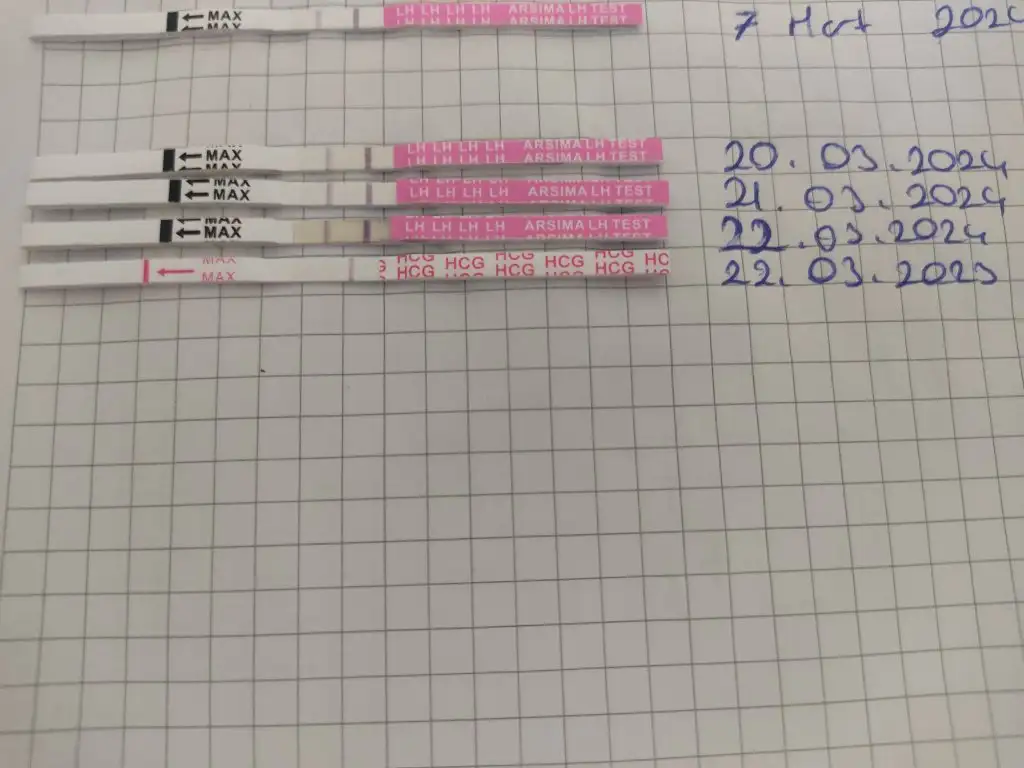 MAX LH LH LH LH ARSIMA LH TEST 7 2024
MAX LH LH LH LH ARSIMA LH TEST
MAX LH LH LH LH ARSIMA LH TEST 20.03.2024
MAX LH LH LH LH ARSIMA LH TEST
MAX LH LH LH LH ARSIMA LH TEST 21.03.2024
MAX
MAX LH LH LH LH ARSIMA LH TEST 22.03.2024
MAX
MAX HCG HCG HCG HCG HCG 22.03.2023
MAX HCG HCG HCG